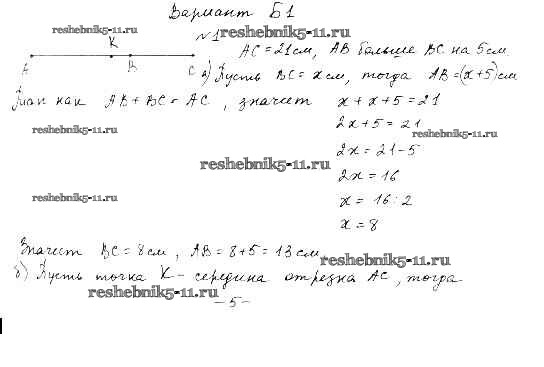 Вариант Б1
reshebnik5-11.ru
№1 reshebnik5-11.ru
K
A B C
AC = 21 см, AB больше BC на 5 см
а) Пусть BC = x см, тогда AB = (x+5) см
Так как AB + BC = AC, значит x + x + 5 = 21
reshebnik5-11.ru
2x + 5 = 21
reshebnik5-11.ru
2x = 21 - 5
reshebnik5-11.ru
2x = 16
reshebnik5-11.ru
x = 16 : 2
x = 8
Значит BC = 8 см, AB = 8 + 5 = 13 см
reshebnik5-11.ru
б) Пусть точка K - середина отрезка AC, тогда
reshebnik5-11.ru
- 5 -